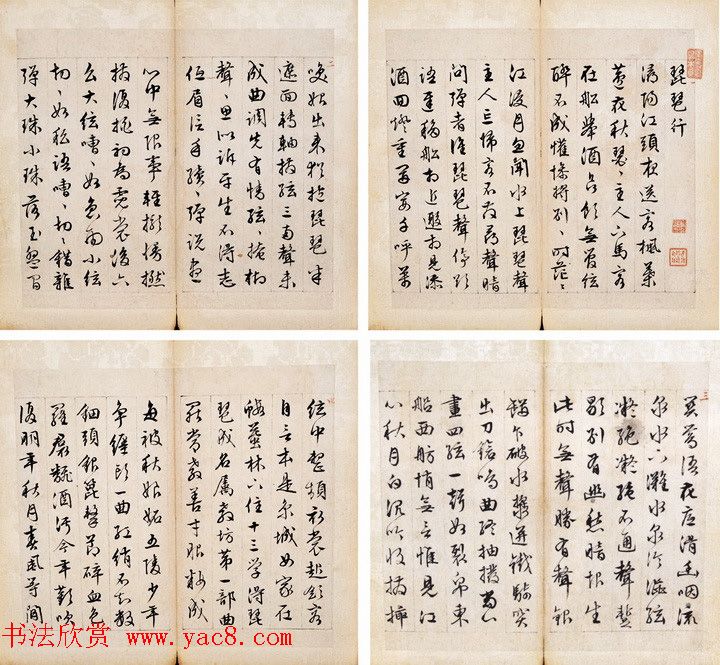 琵琶行
潯陽江頭夜送客楓葉
荻花秋瑟々主人下馬客
在船舉酒欲飲無管絃
醉不成懽慘將別別時茫々
江浸月忽聞水上琵琶聲
主人忘歸客不發尋聲暗
問彈者誰琵琶聲停欲
語遲移船相近邀相見添
酒回燈重開宴千呼萬
喚始出來猶抱琵琶半
遮面轉軸撥絃三兩聲未
成曲調先有情絃々掩抑
聲々思似訴平生不得志
低眉信手續々彈說盡
心中無限事輕攏慢撚
撥復挑初為霓裳後六
么大絃嘈々如急雨小絃
切々如私語嘈々切々錯雜
彈大珠小珠落玉盤間
關鶯語花底滑幽咽流
泉水下灘水泉冷澀絃
凝絕凝絕不通聲暫
歇別有幽愁暗恨生
此時無聲勝有聲銀
瓶乍破水漿迸鐵騎突
出刀鎗鳴曲終抽撥當心
畫四絃一聲如裂帛東
船西舫悄無言惟見江
心秋月白沉吟收撥插
絃中整頓衣裳起斂容
自言本是京城女家在
蝦蟇陵下住十三學得琵
琶成名屬教坊第一部曲
罷常教善才服妝成
每被秋娘妒五陵少年
爭纏頭一曲紅綃不知數
鈿頭銀篦擊節碎血色
羅裙翻酒污今年歡笑
復明年秋月春風等閒
书法欣赏 www.yac8.com